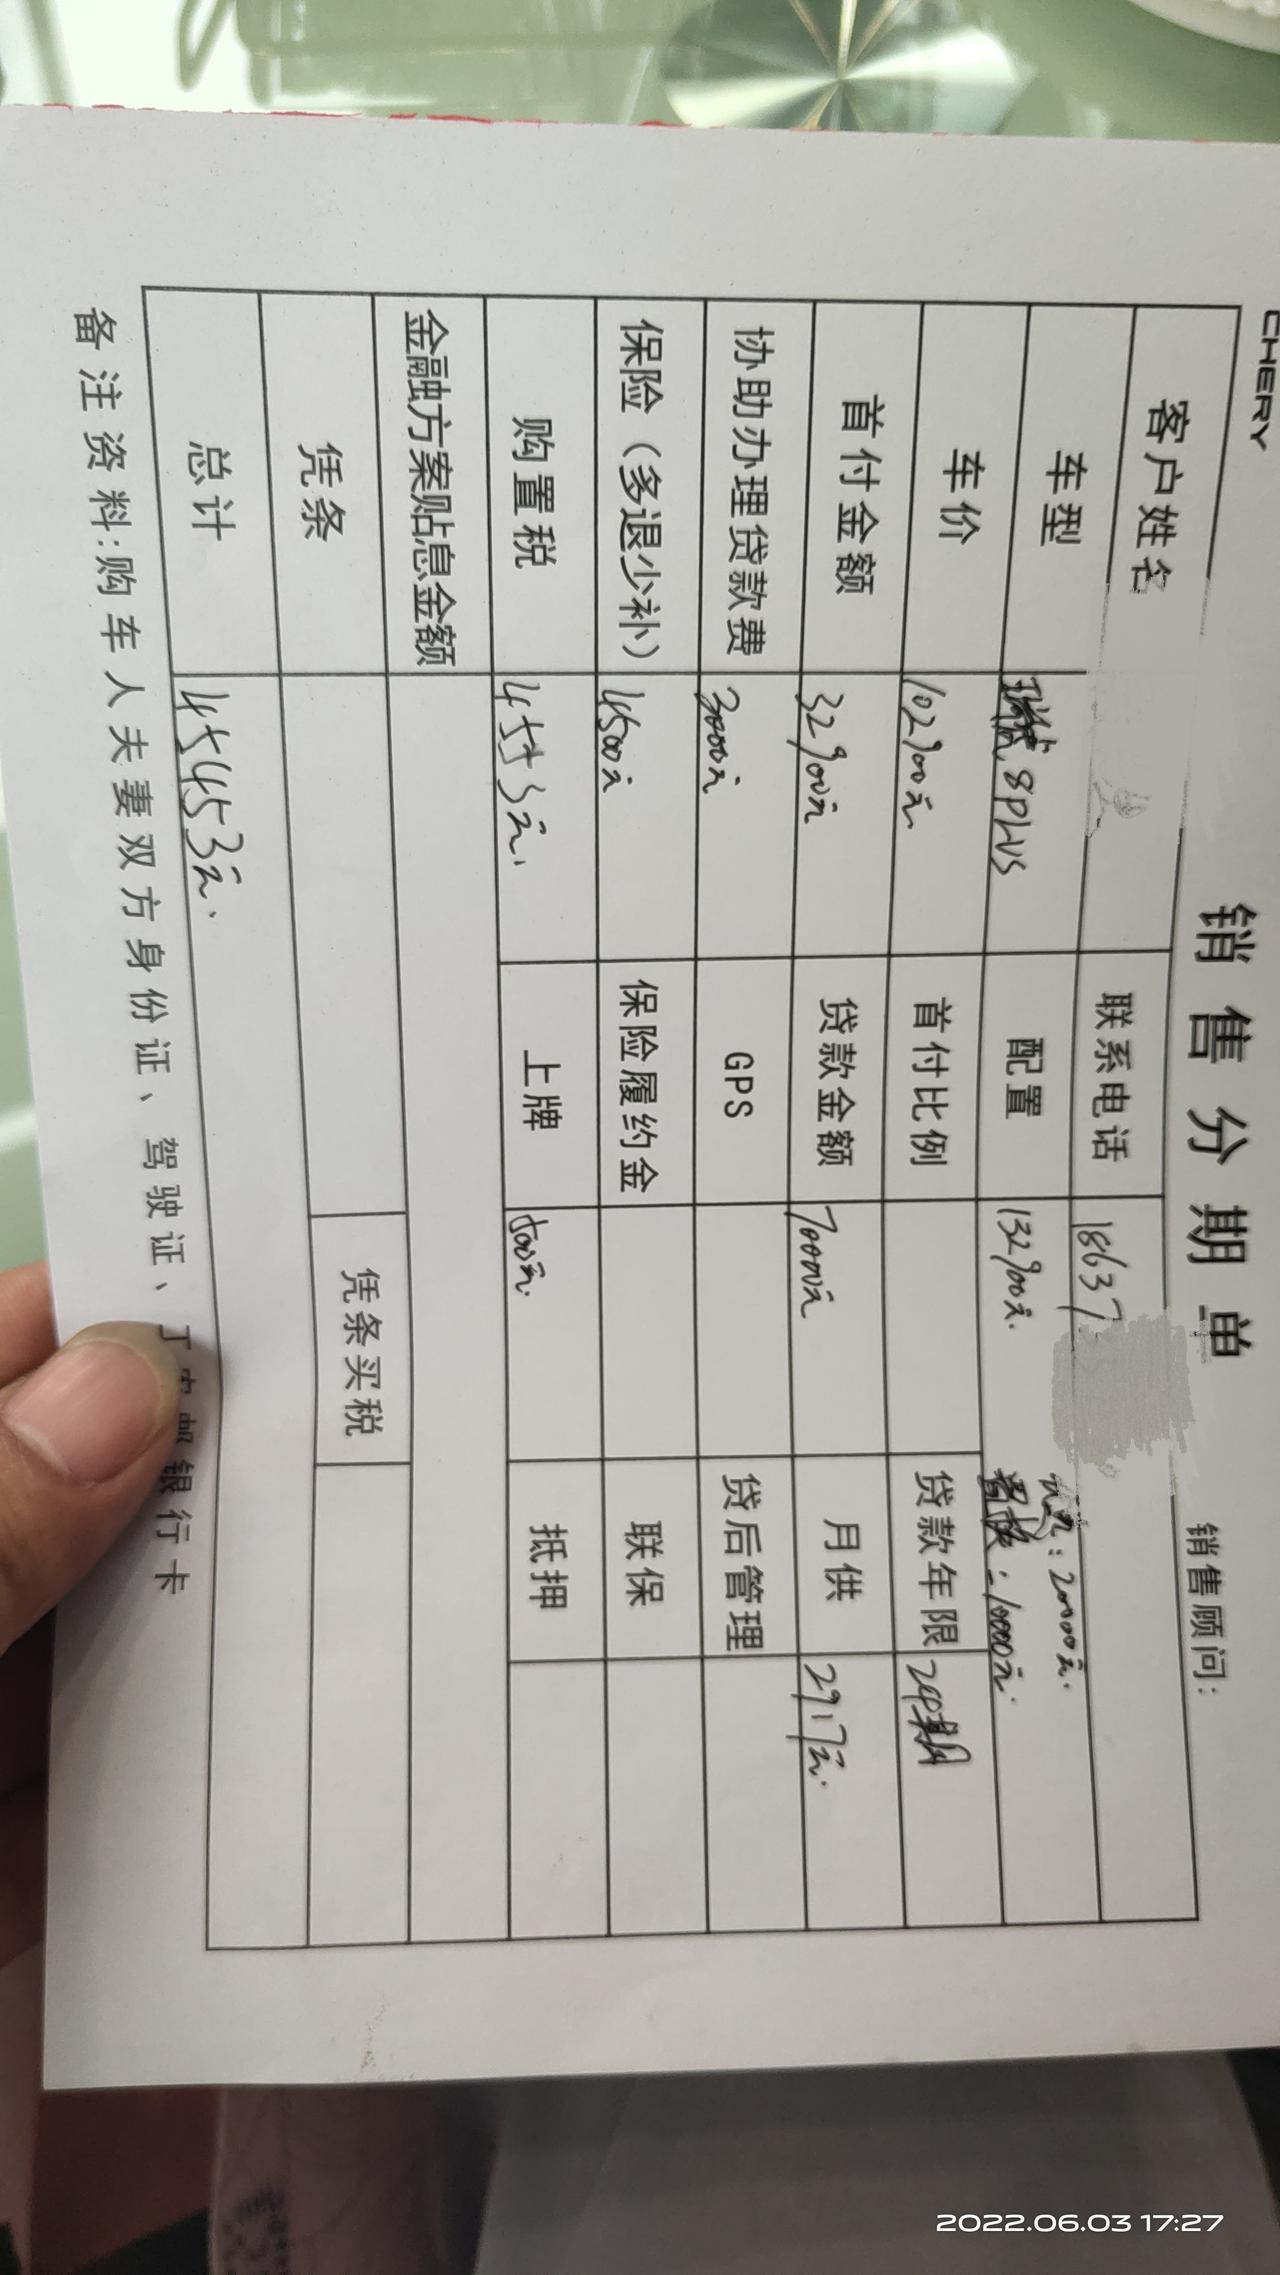 CHERY
销售分期单
销售顾问:
客户姓名 联系电话 18637
车型 瑞虎8PLUS 配置 132900元. 优惠:20000元. 置换:10000元.
车价 102900元 首付比例 贷款年限 24期
首付金额 32900元 贷款金额 70000元 月供 2917元.
协助办理贷款费 3000元 GPS 贷后管理
保险（多退少补） 4500元 保险履约金 联保
购置税 4553元. 上牌 500元. 抵押
金融方案贴息金额
凭条 凭条买税
总计 45453元.
备注资料:购车人夫妻双方身份证、驾驶证、 银行卡
2022.06.03 17:27